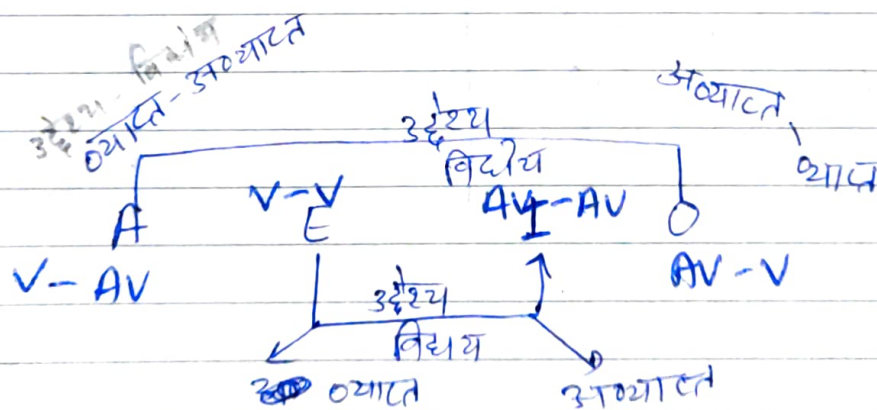 उद्देश्य - विधेय
व्याप्त-अव्याप्त
अव्याप्त, व्याप्त
उद्देश्य
विधेय
V-V AV-AV
A E I O
V-AV AV-V
उद्देश्य
विधेय
व्याप्त अव्याप्त